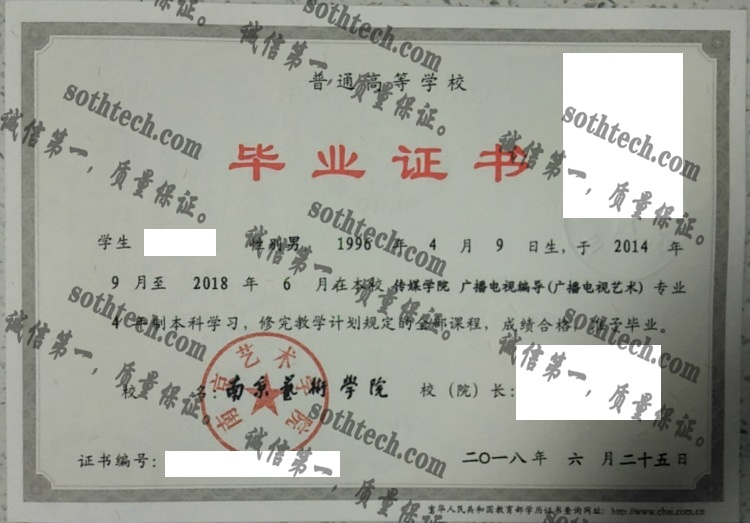 普通高等学校
毕业证书
学生 性别男 1996 年 4 月 9 日生,于 2014 年
9 月至 2018 年 6 月在本校 传媒学院 广播电视编导(广播电视艺术) 专业
4 年制本科学习,修完教学计划规定的全部课程,成绩合格,准予毕业。
校 名:南京藝術學院 校(院)长:
南京艺术学院
证书编号: 二〇一八年 六 月二十五日
中华人民共和国教育部学历证书查询网址: http://www.chsi.com.cn
sothtech.com
诚信第一,质量保证。
sothtech.com
诚信第一,质量保证。
sothtech.com
诚信第一,质量保证。
sothtech.com
诚信第一,质量保证。
sothtech.com
诚信第一,质量保证。
sothtech.com
诚信第一,质量保证。
sothtech.com
诚信第一,质量保证。